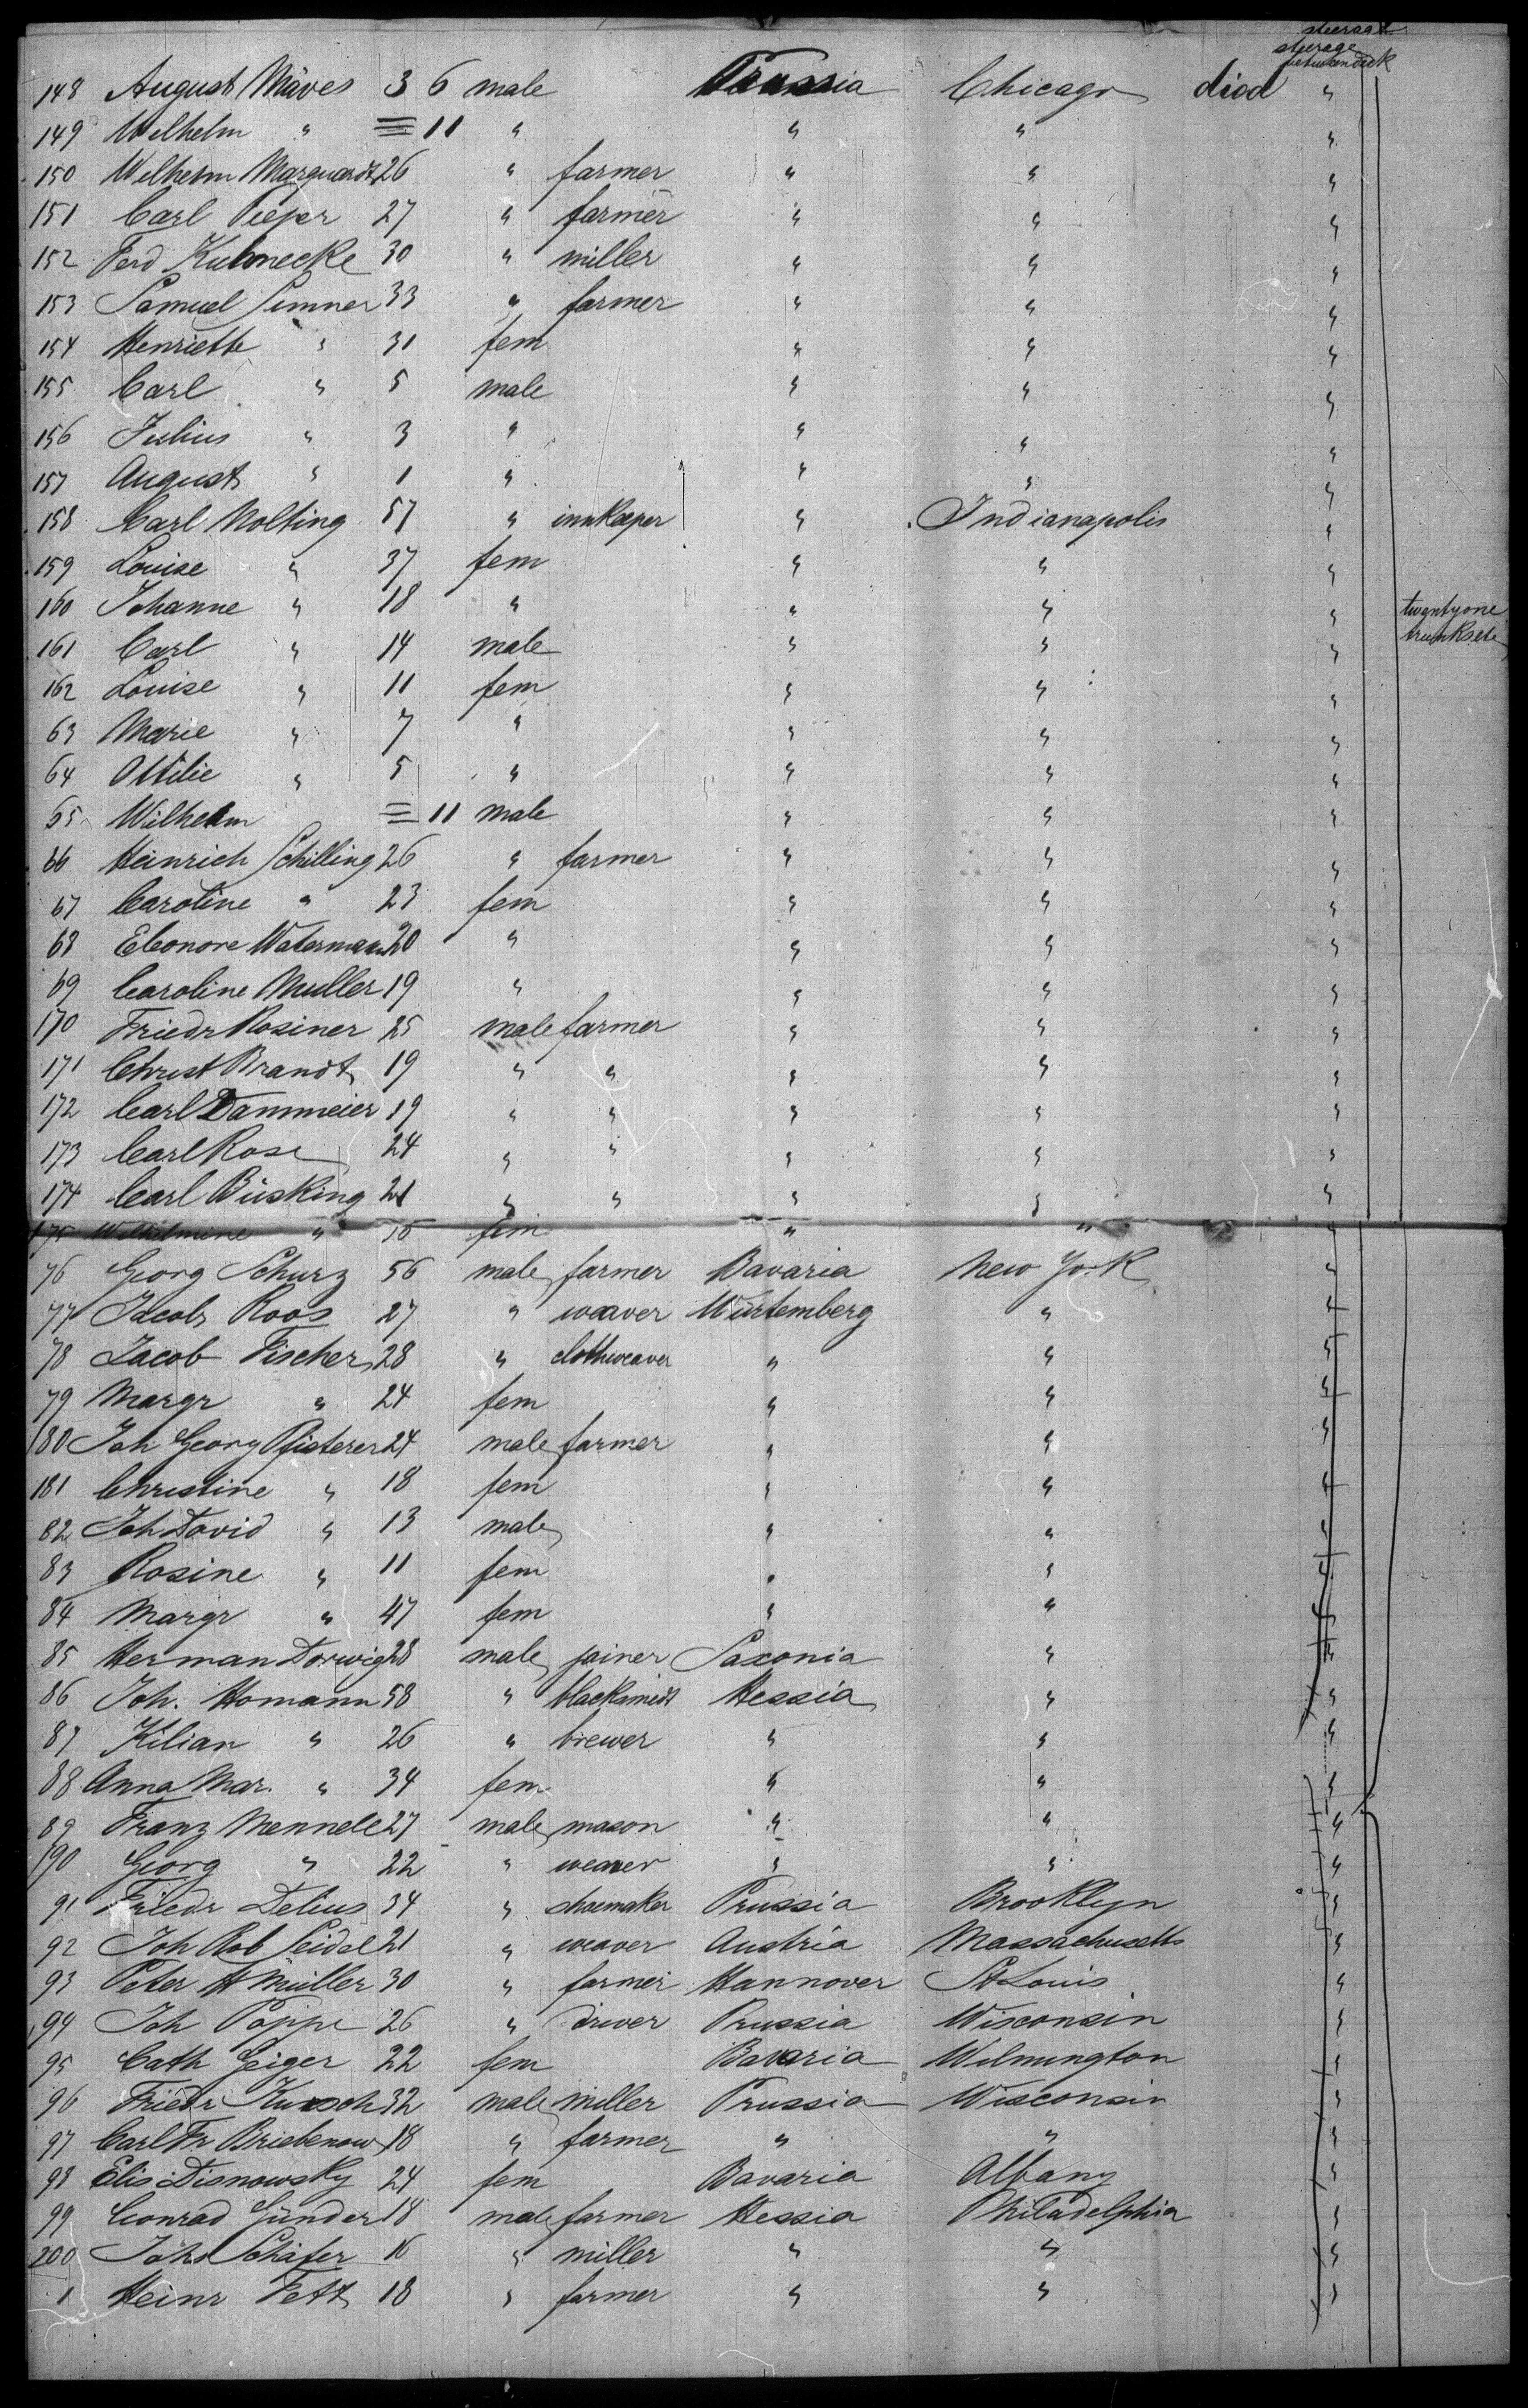 steerage
steerage
betweendeck
148 August Mäves 3 6 male Prussia Chicago died "
149 Wilhelm " = 11 " " " "
150 Wilhelm Marquardt 26 " farmer " " "
151 Carl Pieper 27 " farmer " " "
152 Ferd Kuhnecke 30 " miller " " "
153 Samuel Simner 33 " farmer " " "
154 Henriette " 31 fem " " "
155 Carl " 5 male " " "
156 Julius " 3 " " " "
157 August " 1 " " " "
158 Carl Nolting 57 " innkeper " Indianapolis "
159 Louise " 37 fem " " "
160 Johanne " 18 " " " " twentyone
161 Carl " 14 male " " " trunks etc
162 Louise " 11 fem " " "
63 Marie " 7 " " " "
64 Ottilie " 5 " " " "
65 Wilhelm = 11 male " " "
66 Heinrich Schilling 26 " farmer " " "
67 Caroline " 23 fem " " "
68 Eleonore Waterman 20 " " " "
69 Caroline Muller 19 " " " "
170 Friedr Rosiner 25 male farmer " " "
171 Christ Brandt 19 " " " " "
172 Carl Dammeier 19 " " " " "
173 Carl Rose 24 " " " " "
174 Carl Büsking 21 " " " " "
175 Wilhelmine " fem " " "
76 Georg Schurz 56 male farmer Bavaria New York "
77 Jacob Roos 27 " weaver Würtemberg " "
78 Jacob Fischer 28 " clothweaver " " "
79 Margr " 24 fem " " "
180 Joh Georg Pfisterer 24 male farmer " " "
181 Christine " 18 fem " " "
82 Joh David " 13 male " " "
83 Rosine " 11 fem " " "
84 Margr " 47 fem " " "
85 Herman Dorwig 28 male joiner Saxonia " "
86 Joh. Homann 58 " blacksmidt Hessia " "
87 Kilian " 26 " brewer " " "
88 Anna Mar. " 34 fem " " "
89 Franz Mennele 27 male mason " " "
190 Georg " 22 " weaver " " "
91 Friedr Delius 34 " shoemaker Prussia Brooklyn "
92 Joh Rob Seidel 21 " weaver Austria Massachusetts "
93 Peter H Müller 30 " farmer Hannover St Louis "
194 Joh Poppe 26 " driver Prussia Wisconsin "
95 Cath Geiger 22 fem Bavaria Wilmington "
96 Friedr Kusch 32 male miller Prussia Wisconsin "
97 Carl Fr Briebenow 18 " farmer " " "
98 Elis Disnowsky 24 fem Bavaria Albany "
99 Conrad Günder 18 male farmer Hessia Philadelphia "
200 Johs Schäfer 16 " miller " " "
1 Heinr Fett 18 " farmer " " "